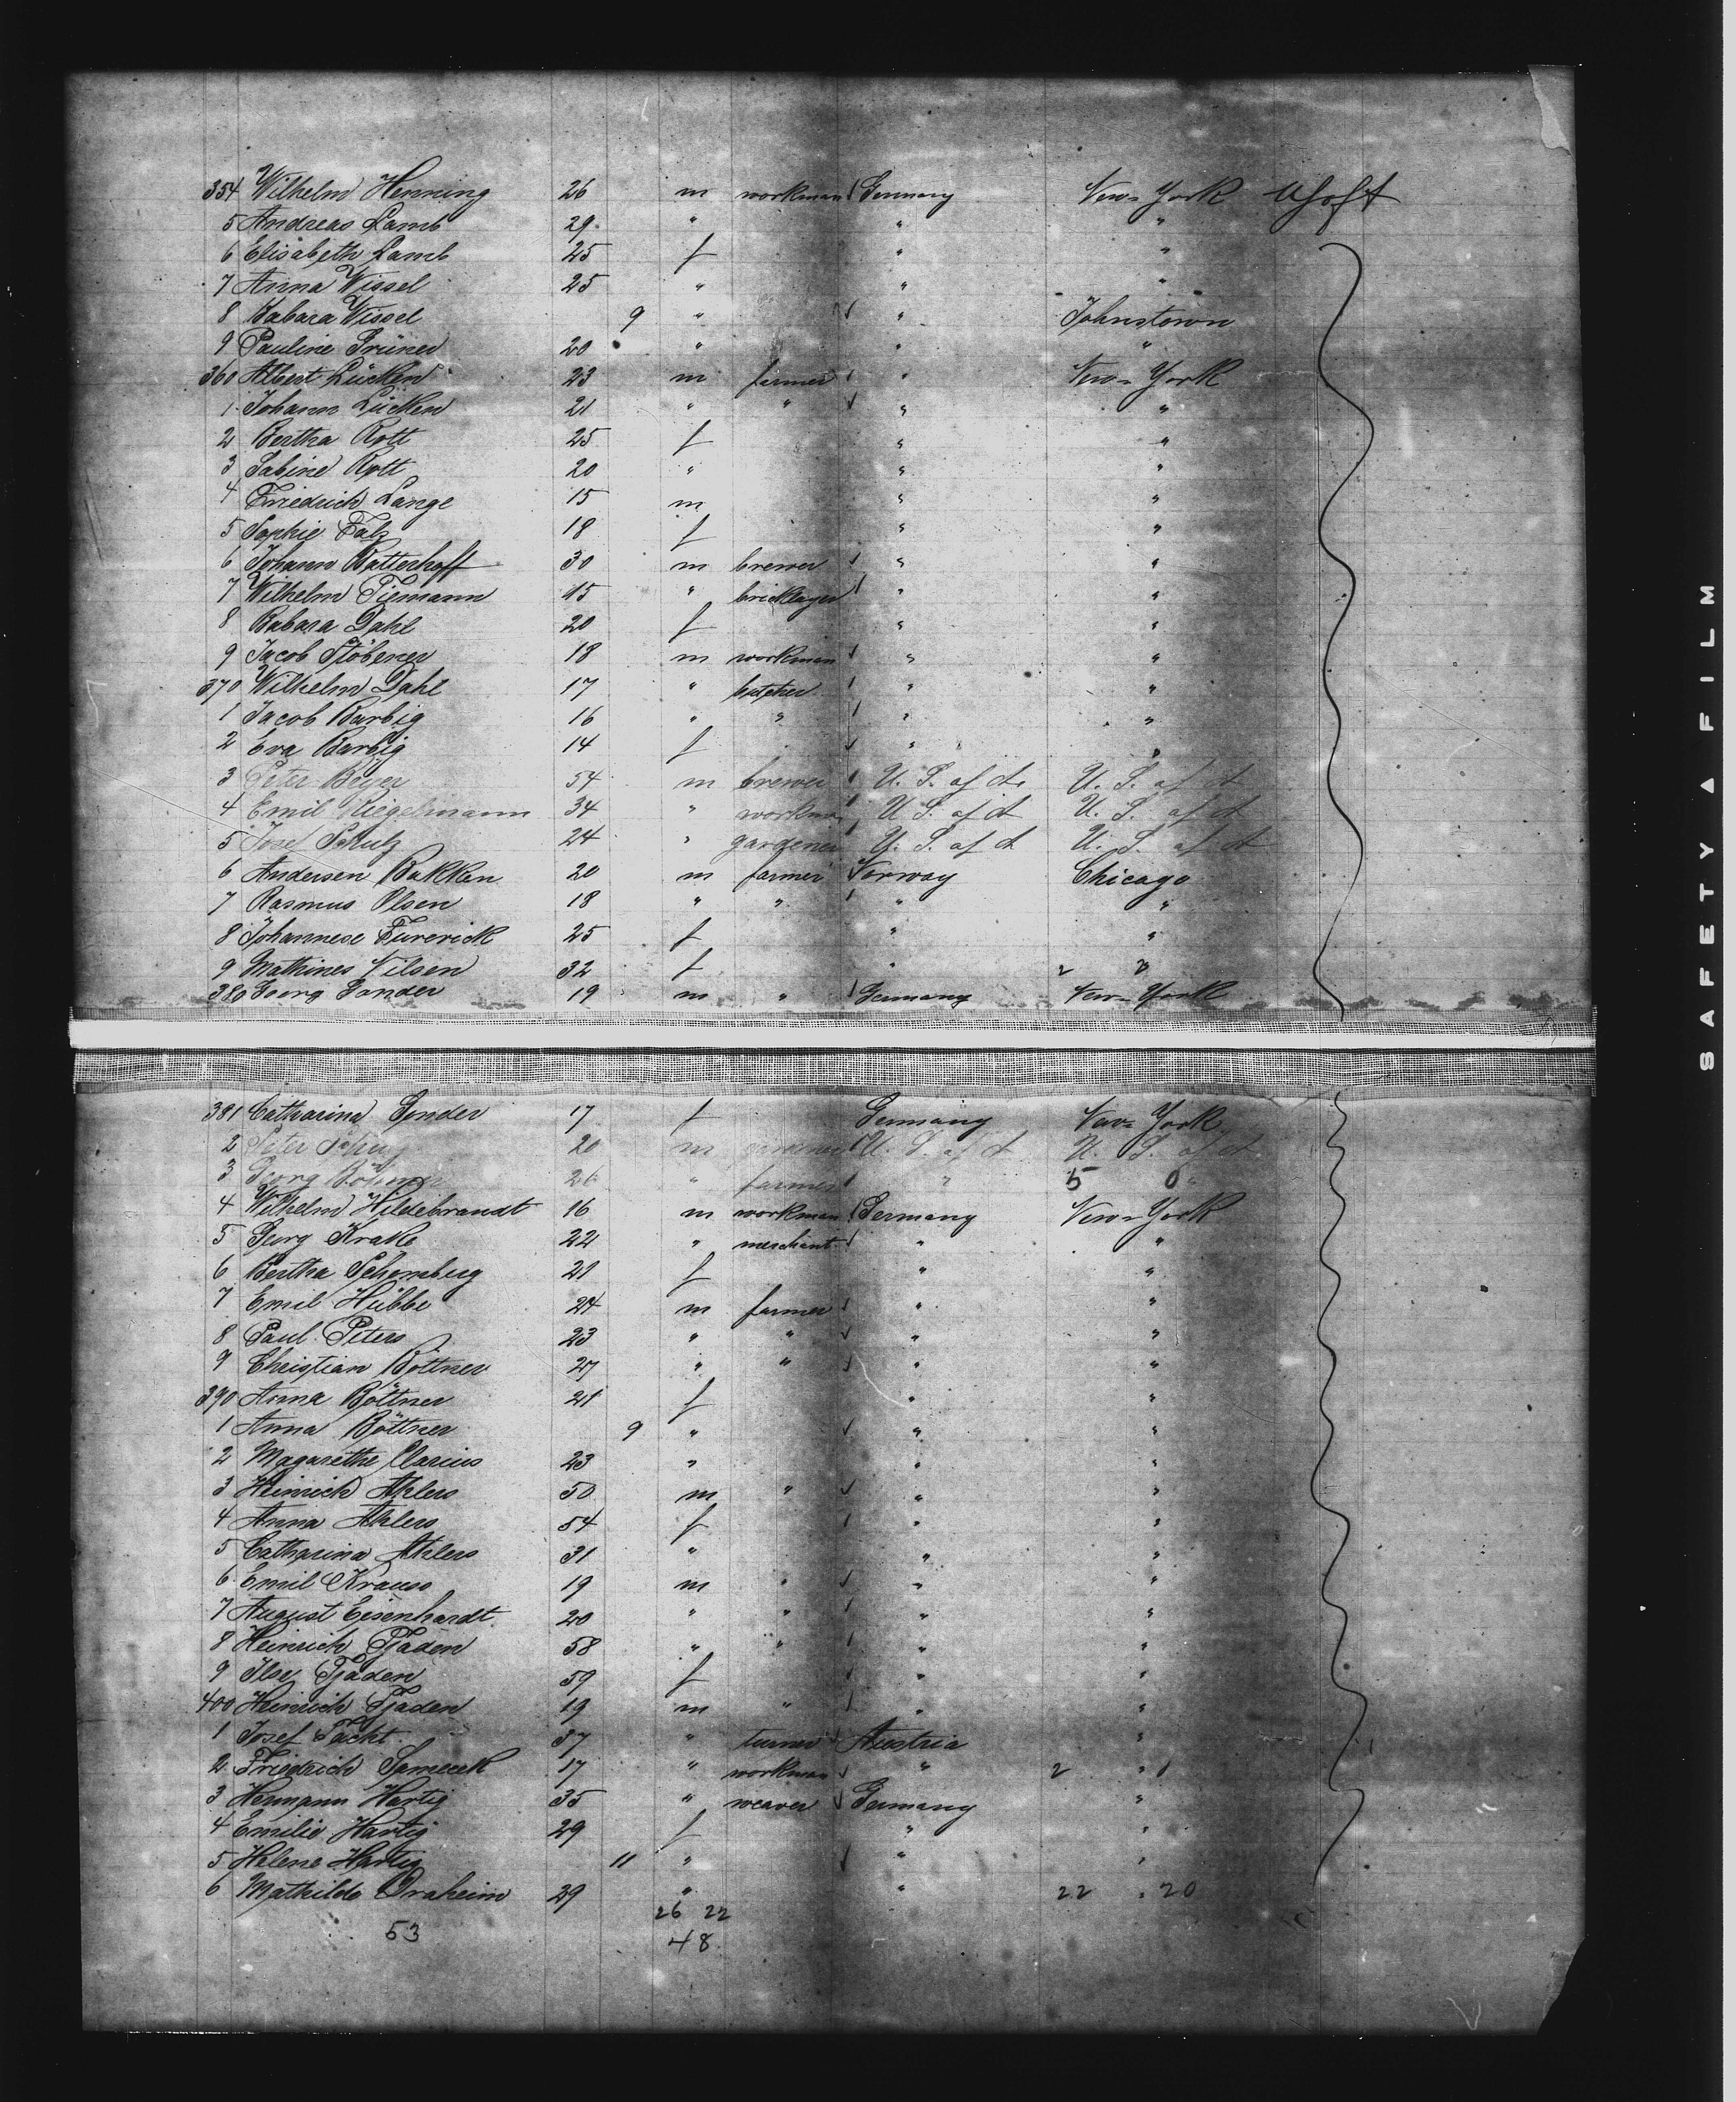 354 Wilhelm Henning 26 m workman Germany New-York
5 Andreas Lamb 29 " " "
6 Elisabeth Lamb 25 f " "
7 Anna Wissel 25 " " "
8 Babara Wissel 9 " " Johnstown
9 Pauline Grüner 20 " " "
360 Albert Lücken 23 m farmer " New-York
1 Johann Lücken 21 " " " "
2 Bertha Rott 25 f " "
3 Sabine Rott 20 " " "
4 Friedrich Lange 15 m " "
5 Sophie Falz 18 f " "
6 Johann Watterhoff 30 m brewer " "
7 Wilhelm Tiemann 15 " bricklayer " "
8 Babara Dahl 20 f " "
9 Jacob Stöbener 18 m workman " "
370 Wilhelm Dahl 17 " butcher " "
1 Jacob Barbig 16 " " " "
2 Eva Barbig 14 f " "
3 Peter Beyer 54 m brewer U. S. of A. U. S. of A
4 Emil Riegelmann 34 " workman U. S. of A U. S. of A
5 Josef Schulz 24 " gardener U. S. of A U. S. of A
6 Andersen Bakken 20 m farmer Norway Chicago
7 Rasmus Olsen 18 " " " "
8 Johannese Furerick 25 f " "
9 Mathines Nilsen 32 f " 2 "
380 Georg Gonder 19 m " Germany New-York
381 Catharina Gonder 17 f Germany New-York
2 Peter 20 m U. S. of A U. S. of A
3 Georg Böhmer 26 " farmer " 5 0
4 Wilhelm Hildebrandt 16 m workman Germany New-York
5 Georg Krake 22 " merchant " "
6 Bertha Schomburg 21 f " "
7 Emil Hübbe 24 m farmer " "
8 Paul Peters 23 " " " "
9 Christian Böttner 27 " " " "
390 Anna Böttner 21 f " "
1 Anna Böttner 9 " " "
2 Magarethe Clarius 23 " " "
3 Heinrich Ahlers 50 m " " "
4 Anna Ahlers 54 f " "
5 Catharina Ahlers 31 " " "
6 Emil Krauss 19 m " " "
7 August Eisenhardt 20 " " " "
8 Heinrich Tjaden 58 " " " "
9 Ilse Tjaden 59 f " "
400 Heinrich Tjaden 19 m " " "
1 Josef Tacht 37 " turner Austria "
2 Friedrich Samecek 17 " workman " 2 " 0
3 Hermann Hartig 35 " weaver Germany "
4 Emilie Hartig 29 f " "
5 Helene Hartig 11 " " "
6 Mathilde Oraheim 29 " " 22 " 20
26 22
53 48
SAFETY FILM